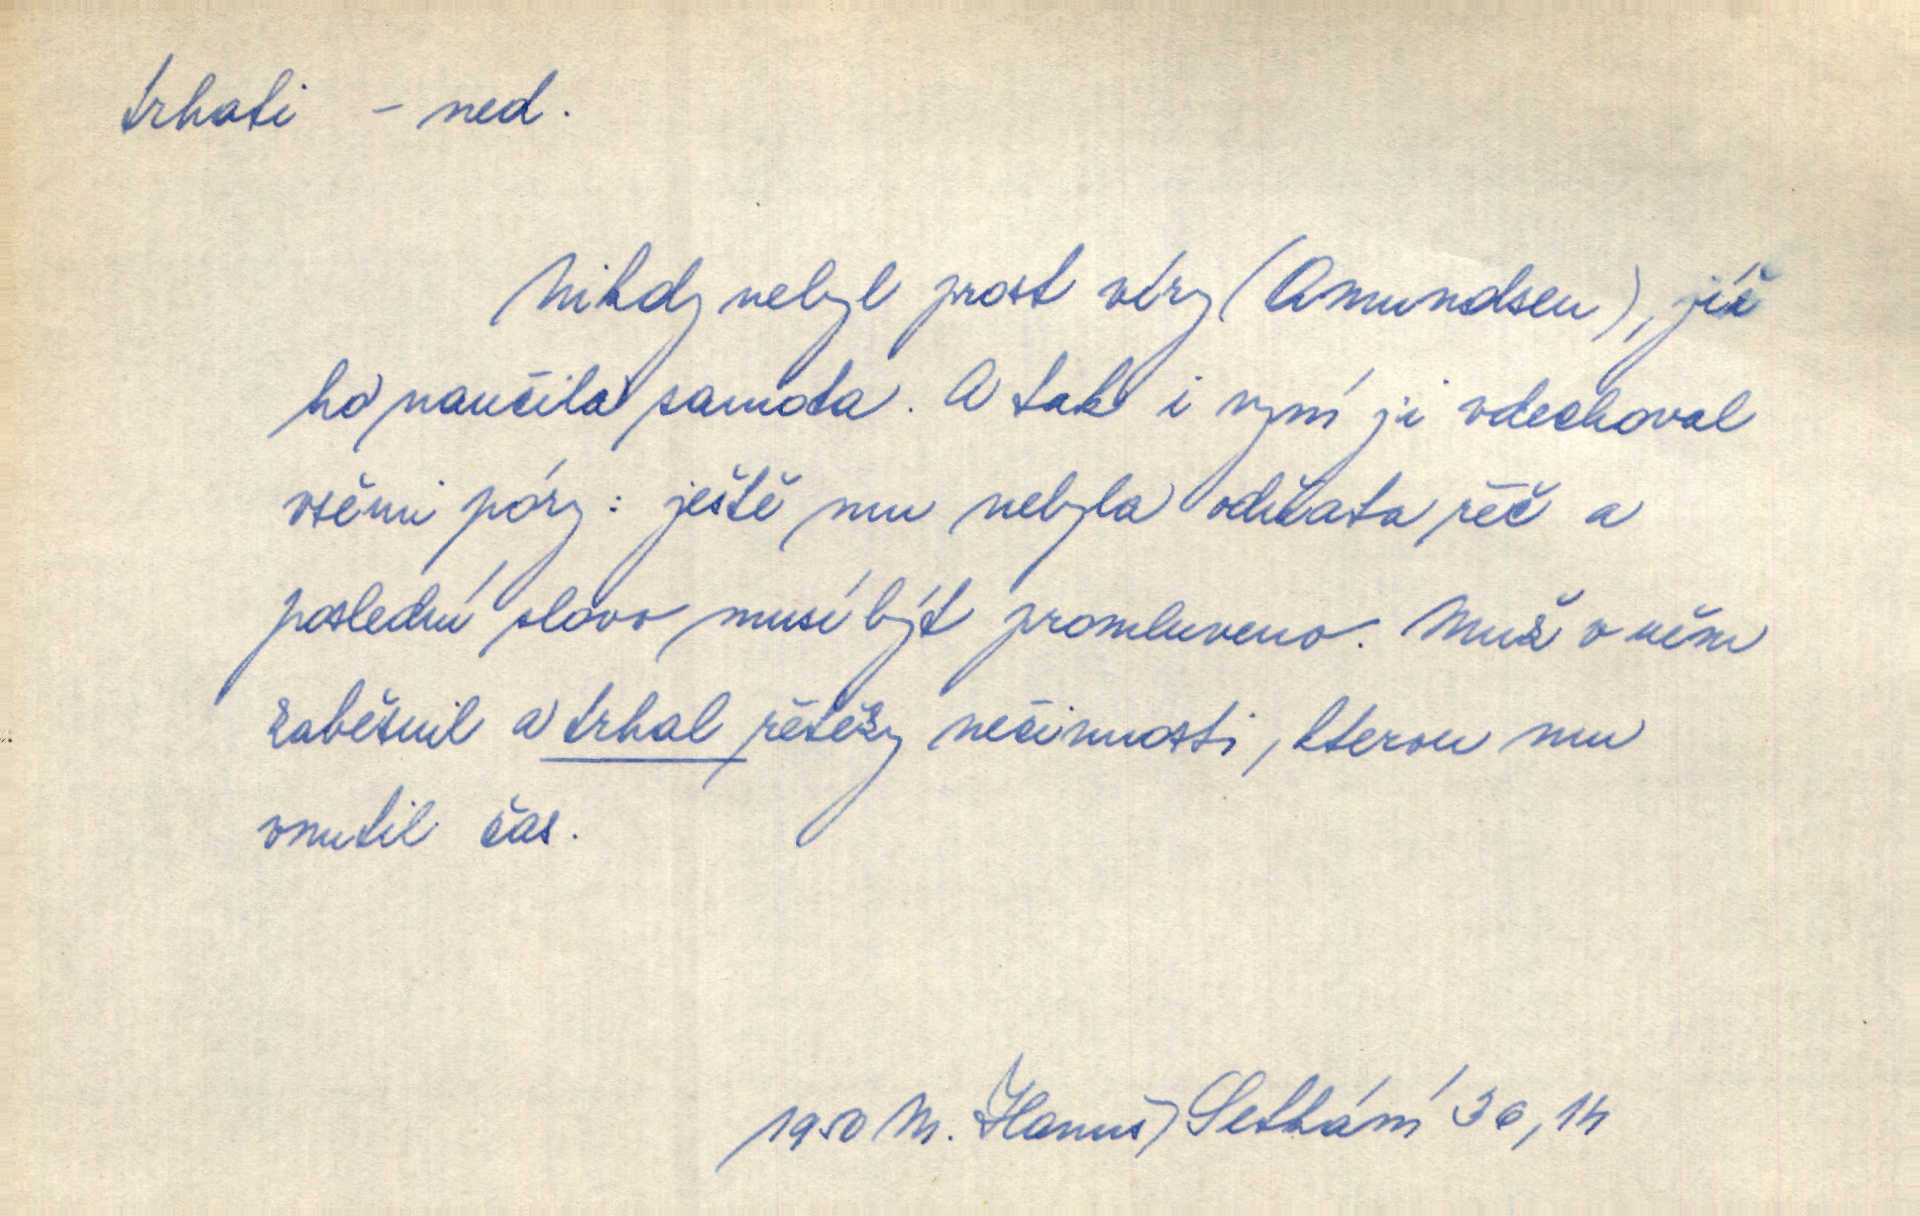 trhati – ned.
Nikdy nebyl prost víry (Amundsen), jíž
ho naučila samota. A tak i nyní ji vdechoval
všemi póry: ještě mu nebyla odňata řeč a
poslední slovo musí býti promluveno. Muž v něm
zaběsnil a trhal řetězy nečinnosti, kterou mu
vnutil čas.
1950 M. Hanuš, Setkání 36, 14